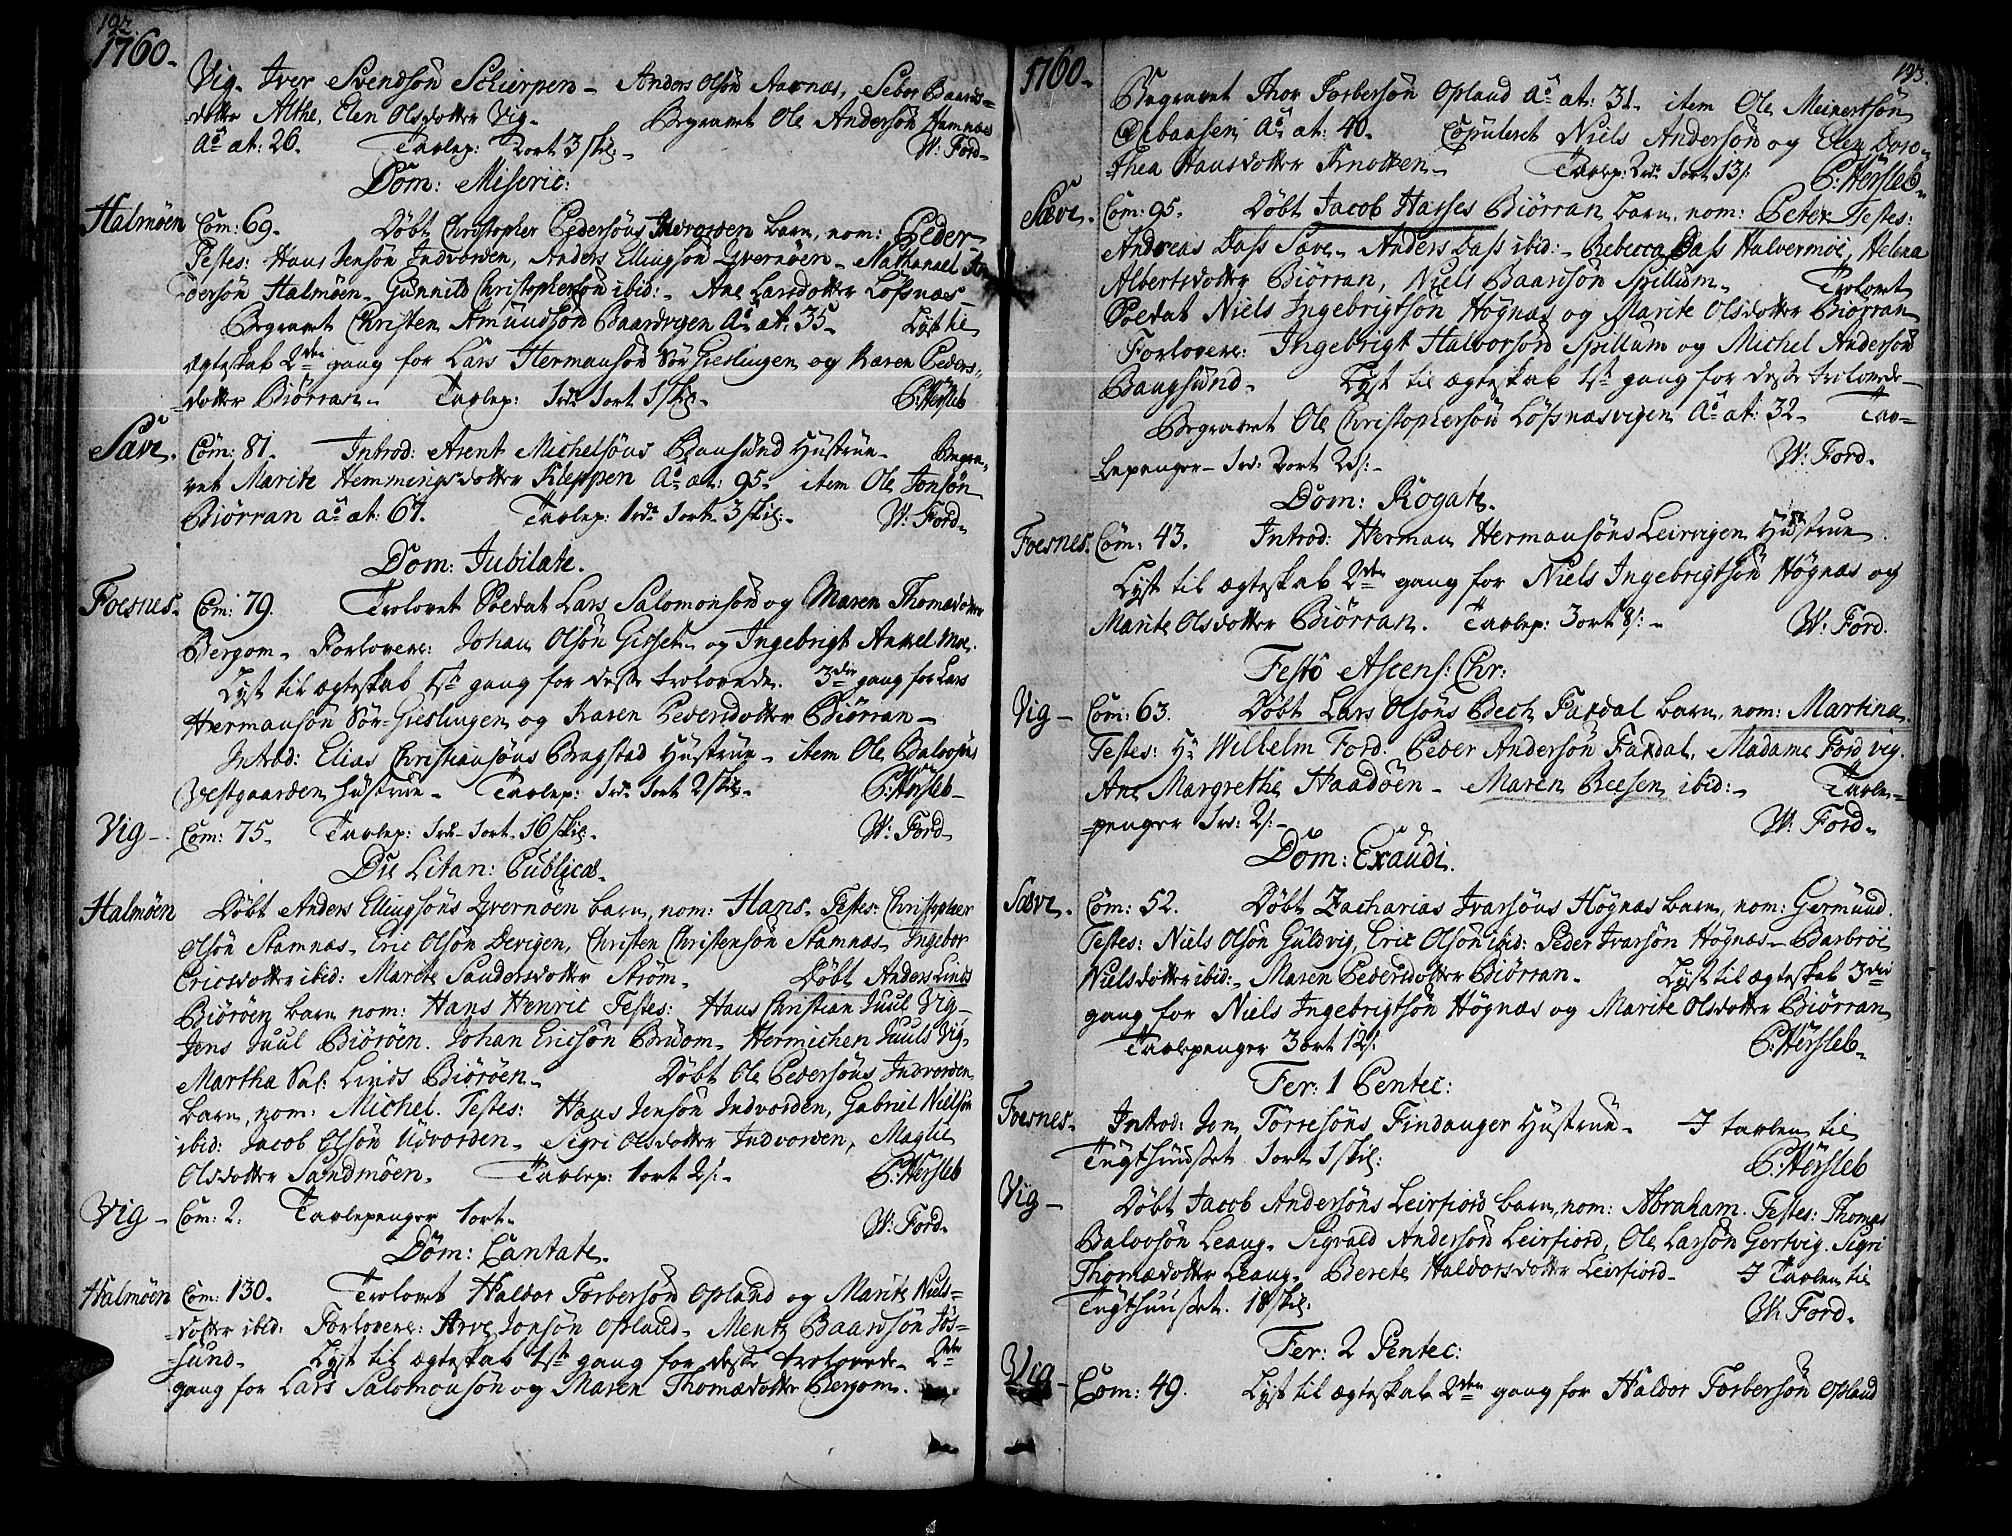 192.
1760.
Vig. Iver Svendsön Schierpen. Anders Olsön Aarnæs, Seber Baards=
dotter Althe, Elen Olsdotter Vig. Begravet Ole Andersön Hamnæs
Aō æt: 26. Tavlep: 2ort 3 skil. W: Ford.
Dom: Miseric:
Halmöen Com: 69. Döbt Christopher Pedersöns Indvorden barn, nom: Peder.
Testes: Hans Jensön Indvorden, Anders Ellingsön Qvernöen. Nathanael An
dersön Halmöen. Gunnild Christophersdō ibid: Ane Larsdotter Löfsnæs.
Begravet Christen Amundsön Baardvigen Aō æt: 35. Lyst til
ægteskab 2den gang for Lars Hermansön Sör Gieslingen og Karen Peders=
dotter Biörran. Tavlep: 1rdr 1ort 1 skil. C: Hersleb
Sævi. Com: 81. Introd: Arent Michelsöns Bansund Hustrue. Begra=
vet Marite Hemmingsdotter Kleppen Aō æt: 95. item Ole Jonsön
Biörran aō æt: 67. Tavlep: 1rdr 1ort 3 skil. W: Ford.
Dom: Jubilate.
Foesnes. Com: 79. Trolovet Soldat Lars Salomonsön og Maren Thomædotter
Bergom. Forlovere: Johan Olsön Gisset og Ingebrigt Axsel Moe.
Lyst til ægteskab 1st gang for desse trolovede. 3die gang for Lars
Hermansön Sör-Gieslingen og Karen Pedersdotter Biörran.
Introd: Elias Christiansöns Bragstad Hustrue. item Ole Balvosöns
Vestgaarden hustrue. Tavlep: 1rdr 1ort 2 skil. C: Hersleb
Vig. Com: 75. Tavlep: 1rdr 1ort 16 skil. W: Ford.
Die Litan: Publicæ.
Halmöen Döbt Anders Ellingsöns Qvernöen barn, nom: Hans. Testes: Christopher
Olsön Stamnæs. Eric Olsön Devigen, Christen Christensön Stamnæs, Ingebor
Ericsdotter ibid: Marite Sandersdotter Ström. Döbt Anders Linds
Biöröen barn nom: Hans Henric Testes: Hans Christian Juul Vig.
Jens Juul Biöröen. Johan Ericsön Brudom. Hermichen Juuls Vig.
Martha Sal: Linds Biöröen. Döbt Ole Pedersöns Indvorden
barn, nom: Michel. Testes: Hans Jensön Indvorden, Gabriel Nielsön
ibid: Jacob Olsön Udvorden. Sigri Olsdotter Indvorden, Magli
Olsdotter Sandmöen. Tavlep: 1ort 2/: C: Hersleb
Vig. Com: 2. Tavlepenger 1ort. W: Ford.
Dom: Cantate.
Halmöen Com: 130. Trolovet Haldor Torbersön Opland og Marite Niels=
dotter ibid: Forlovere: Arve Jonsön Opland. Mentz Baardsön Jös=
sund. Lyst til ægteskab 1st gang for desse trolovede. 2den
gang for Lars Salomonsön og Maren Thomædotter Bergom.
1760. 193.
Begravet Thor Torbersön Opland Aō æt: 31. item Ole Meinertsön
Oelbaasen Aō æt: 40. Copuleret Niels Andersön og Elen Doro=
thea Hansdotter Knotten. Tavlep: 2rdr 1ort 13/: C: Hersleb.
Sævi. Com: 95. Döbt Jacob Hasses Biörran barn, nom: Peter Testes:
Andreas Dass Sæve. Anders Dass ibid: Rebecca Dass Halvermöe, Helena
Albertsdotter Biörran, Niels Baarsön Spillum. Trolovet
Soldat Niels Ingebrigtsön Högnæs og Marite Olsdotter Biörran
Forlovere: Ingebrigt Halvorsön Spillum og Michel Andersön
Bangsund. Lyst til ægteskab 1st gang for desse trolovede.
Begravet Ole Christophersön Löfsnæsvigen Aō æt: 32. Tav=
lepenger 1rd: 2ort 21/: W: Ford.
Dom: Rogate.
Foesnes. Com: 43. Introd: Herman Hermansöns Leirvigen Hustrue.
Lyst til ægteskab 2den gang for Niels Ingebrigtsön Högnæs og
Marite Olsdotter Biörran. Tavlep: 3ort 8/: W: Ford.
Festo Ascens: Chr:
Vig Com: 63. Döbt Lars Olsöns Bech Fardal barn, nom: Martina.
Testes: Hr Wilhelm Ford: Peder Andersön Fardal, Madame Ford vig.
Ane Margrethe Haadöen. Maren Beesen ibid: Tavle=
penger 1rd: 2/: W: Ford.
Dom: Exaudi.
Sævi. Com: 52. Döbt Zacharias Ivarsöns Högnæs barn, nom: Germund.
Testes: Niels Olsön Guldvig, Eric Olsön ibid: Peder Ivarsön Högnæs. Barbroe
Nielsdotter ibid: Maren Pedersdotter Biörran. Lyst til ægteskab 3die
gang for Niels Ingebrigtsön Högnæs og Marite Olsdotter Biörran.
Tavlepenger 3ort 12/: C: Hersleb.
Fer: 1 Pentec:
Foesnes. Introd: Jon Torresöns Findanger Hustrue. I tavlen til
Tugthuuset 1ort 1 skil: C: Hersleb
Vig Döbt Jacob Andersöns Leirfiord barn, nom: Abraham. Testes: Thomas
Balvosön Leaug. Sigvald Andersön Leirfiord, Ole Larsön Gertvig. Sigri
Thomædotter Leaug. Berete Haldorsdotter Leirfiord. I Tavlen til
Tugthuuset. 18 skil: W: Ford.
Fer: 2 Pentec:
Vig Com: 49. Lyst til ægteskab 2den gang for Haldor Torbersön Opland